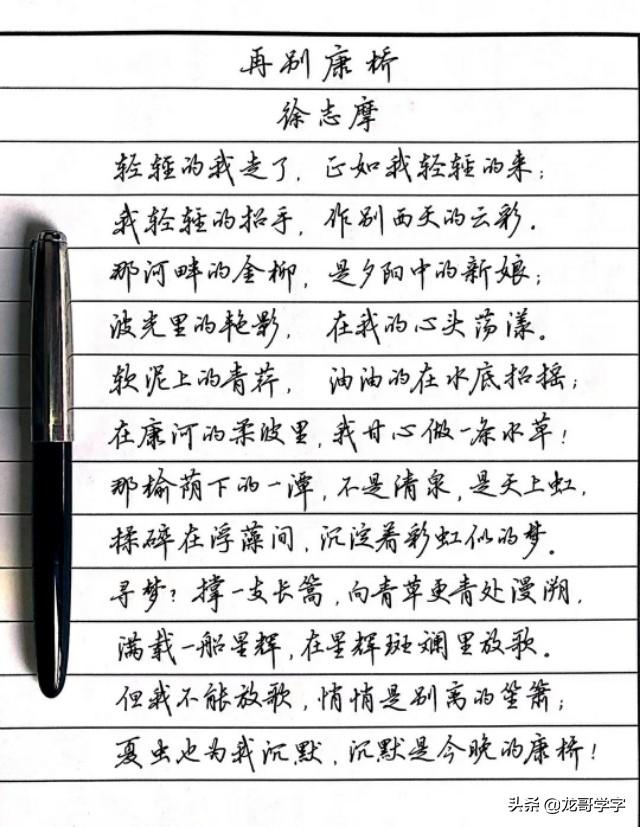 再别康桥
徐志摩
轻轻的我走了，正如我轻轻的来；
我轻轻的招手，作别西天的云彩。
那河畔的金柳，是夕阳中的新娘；
波光里的艳影，在我的心头荡漾。
软泥上的青荇，油油的在水底招摇；
在康河的柔波里，我甘心做一条水草！
那榆荫下的一潭，不是清泉，是天上虹，
揉碎在浮藻间，沉淀着彩虹似的梦。
寻梦？撑一支长篙，向青草更青处漫溯，
满载一船星辉，在星辉斑斓里放歌。
但我不能放歌，悄悄是别离的笙箫；
夏虫也为我沉默，沉默是今晚的康桥！
头条 @龙哥学字